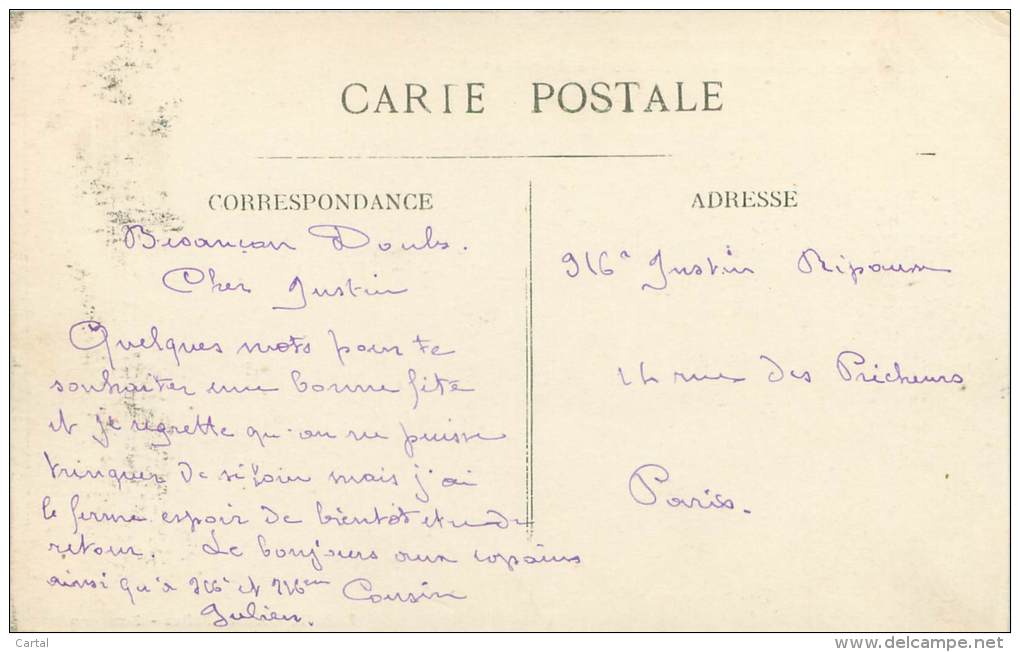 CARTE POSTALE
CORRESPONDANCE
Besançon Doubs.
Cher Justin
Quelques mots pour te
souhaiter une bonne fête
et je regrette qu'on ne puisse
trinquer de si loin mais j'ai
le ferme espoir de bientôt etre de
retour. Le bonjours aux copains
ainsi qu'à Mr et Mme Cousin
Julien.
ADRESSE
Mr Justin Ripoux
14 rue des Prêcheurs
Paris.
Cartal
www.delcampe.net